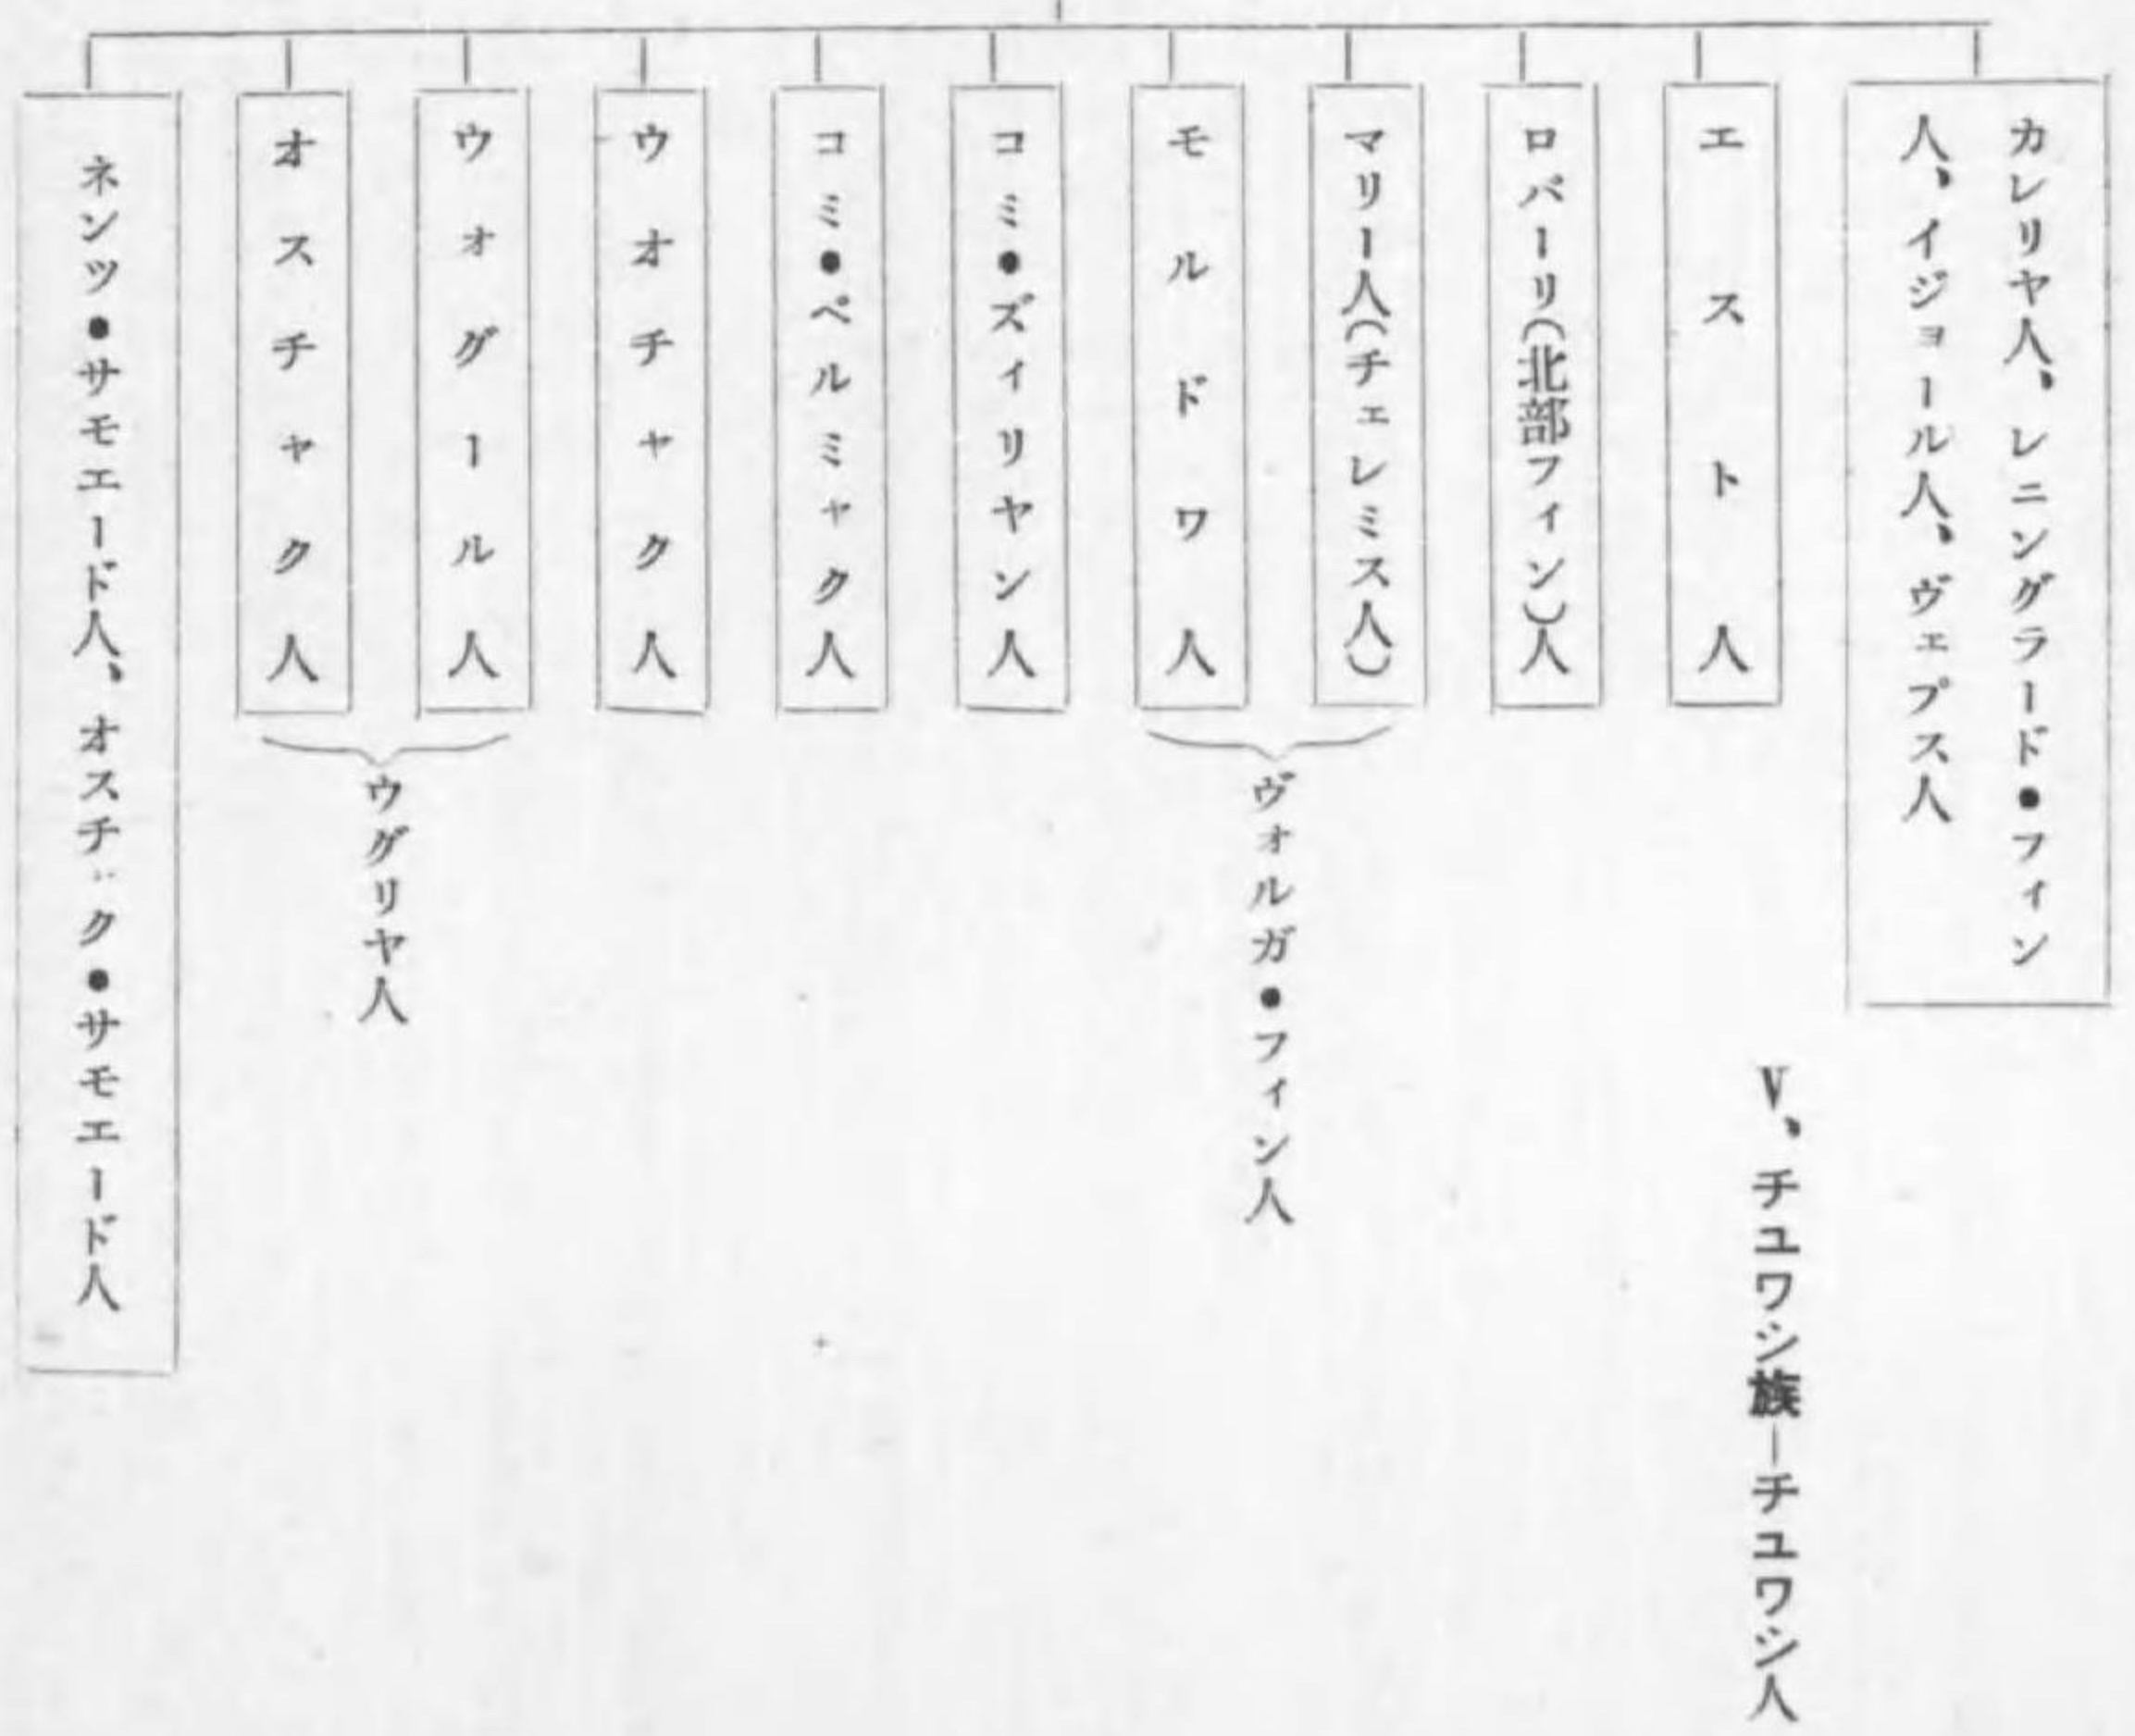 カレリヤ人、レニングラード・フィン
人、イジョール人、ヴェプス人
エスト人
ロパーリ(北部フィン)人
マリー人(チェレミス人)
モルドワ人
ヴォルガ・フィン人
コミ・ズィリヤン人
コミ・ペルミャク人
ウオチャク人
ウォグール人
オスチャク人
ウグリヤ人
ネンツ・サモエード人、オスチャク・サモエード人
V、チュワシ族—チュワシ人